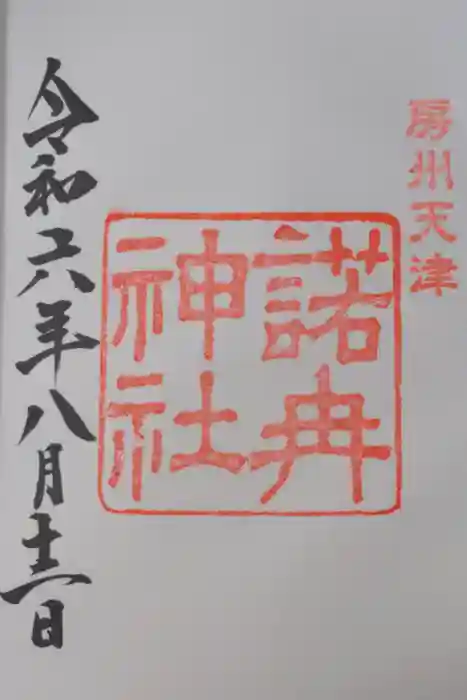 房州天津
諾冉
神社
令和六年八月十三日